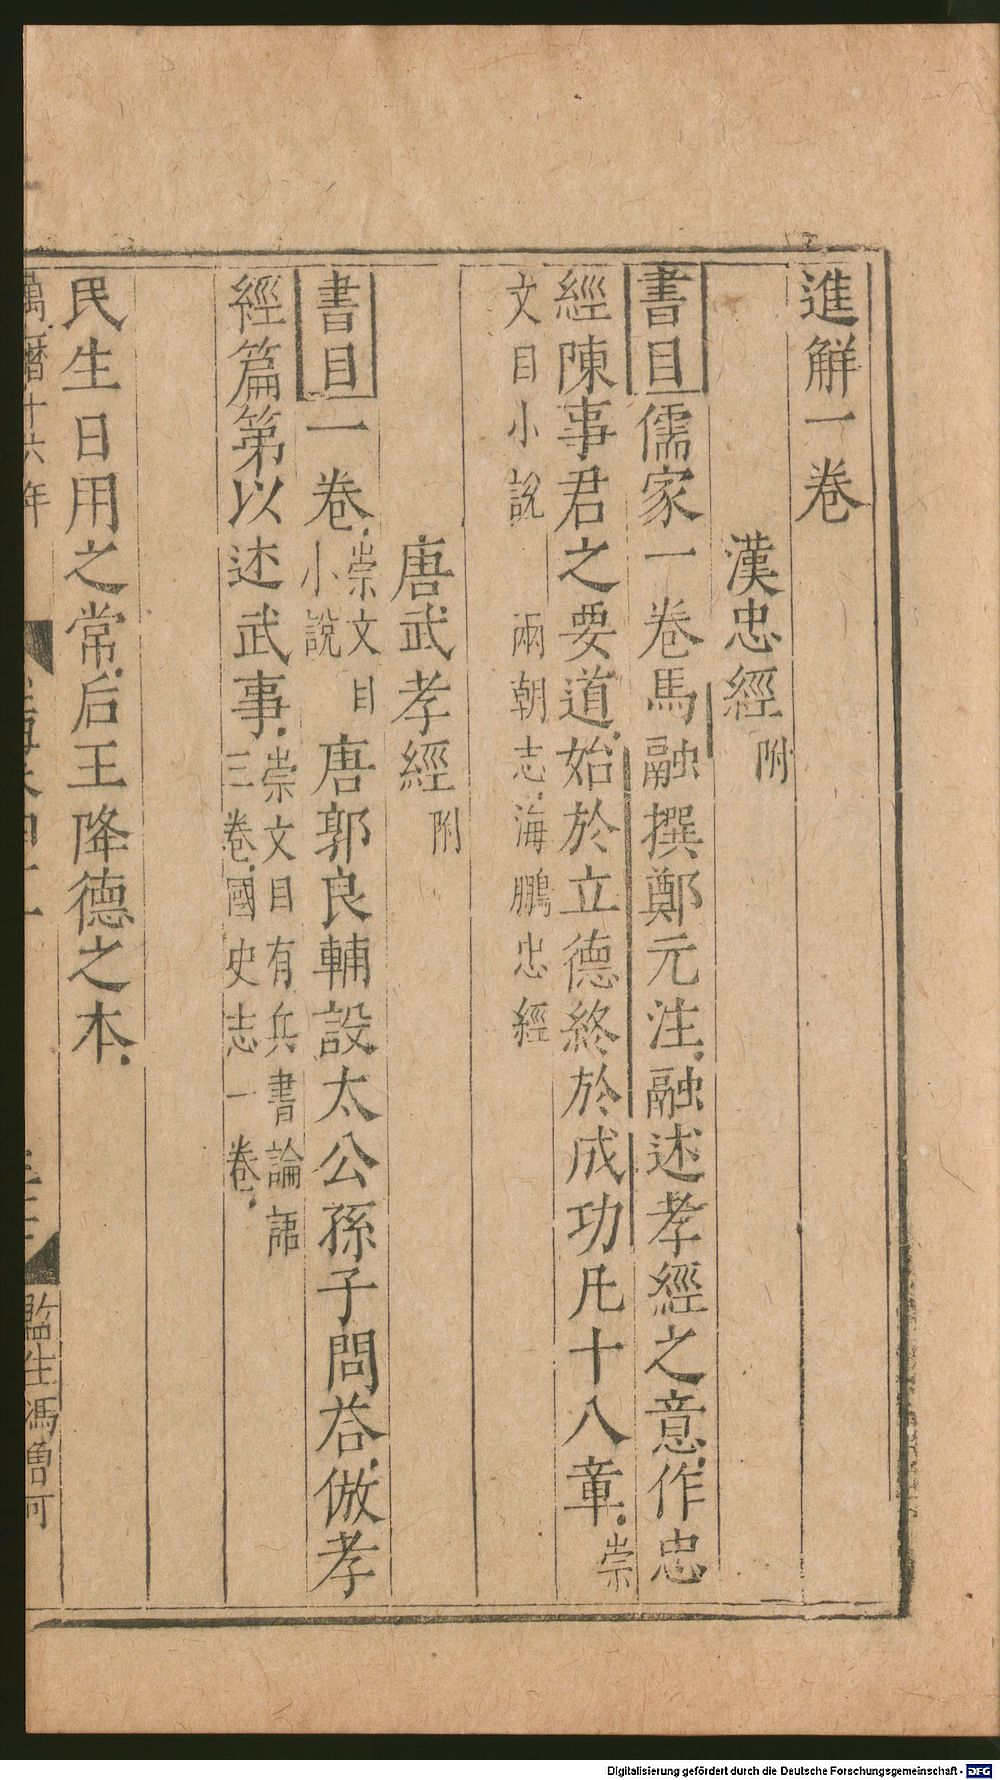 進解一卷
漢忠經附
書目儒家一卷馬融撰鄭元注融述孝經之意作忠
經陳事君之要道始於立德終於成功凡十八章崇
文目小說 兩朝志海鵬忠經
唐武孝經附
書目一卷崇文目小說唐郭良輔設太公孫子問答倣孝
經篇第以述武事崇文目有兵書論語三卷國史志一卷
民生日用之常后王降德之本
萬曆十六年
監生馮魯可
Digitalisierung gefördert durch die Deutsche Forschungsgemeinschaft - DFG